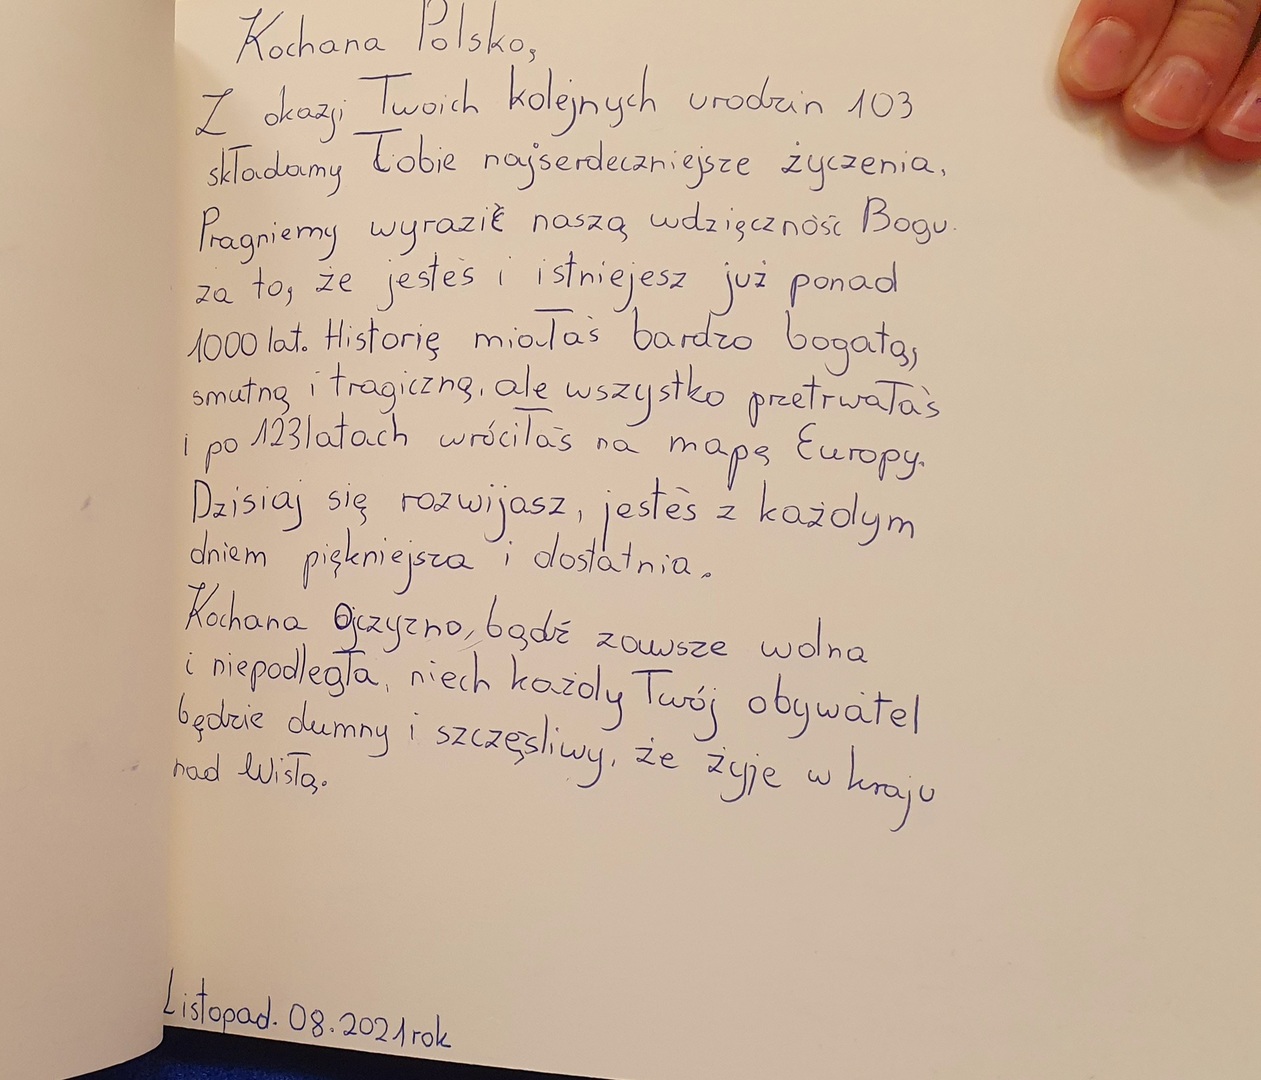 Kochana Polsko,
Z okazji Twoich kolejnych urodzin 103
składamy Tobie najserdeczniejsze życzenia.
Pragniemy wyrazić naszą wdzięczność Bogu.
za to, że jesteś i istniejesz już ponad
1000 lat. Historię miałaś bardzo bogatą,
smutną i tragiczną, ale wszystko przetrwałaś
i po 123 latach wróciłaś na mapę Europy.
Dzisiaj się rozwijasz, jesteś z każdym
dniem piękniejsza i dostatnia.
Kochana Ojczyzno, bądź zawsze wolna
i niepodległa, niech każdy Twój obywatel
będzie dumny i szczęśliwy, że żyje w kraju
nad Wisłą.
Listopad. 08.2021 rok